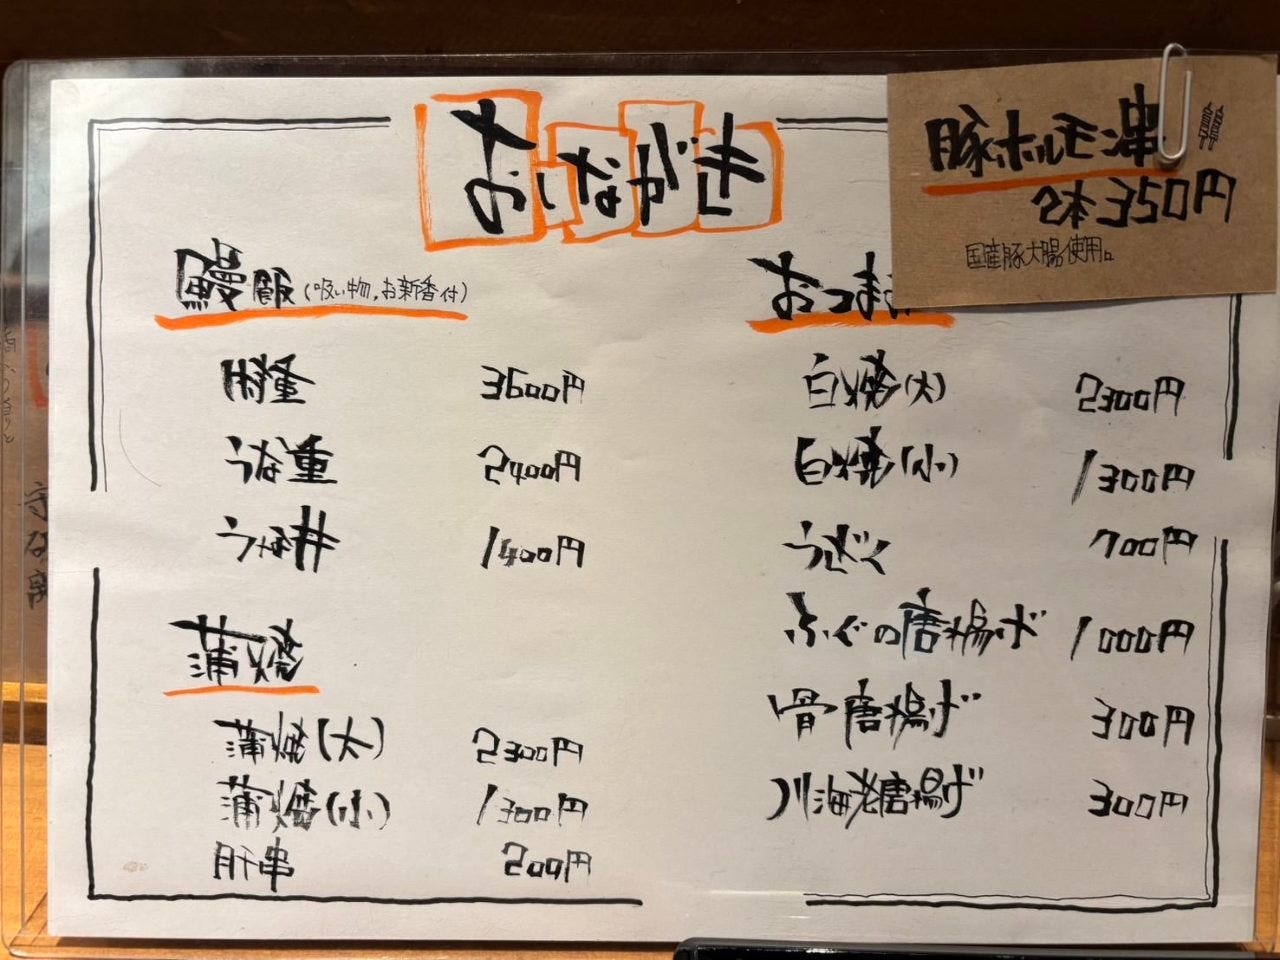 おしながき
豚ホルモン串
2本350円
国産豚大腸使用。
鰻飯(吸い物,お新香付)
特重 3600円
うな重 2400円
うな丼 1400円
蒲焼
蒲焼(大) 2300円
蒲焼(小) 1300円
肝串 200円
おつま
白焼(大) 2300円
白焼(小) 1300円
うざく 700円
ふぐの唐揚げ 1000円
骨唐揚げ 300円
川海老唐揚げ 300円